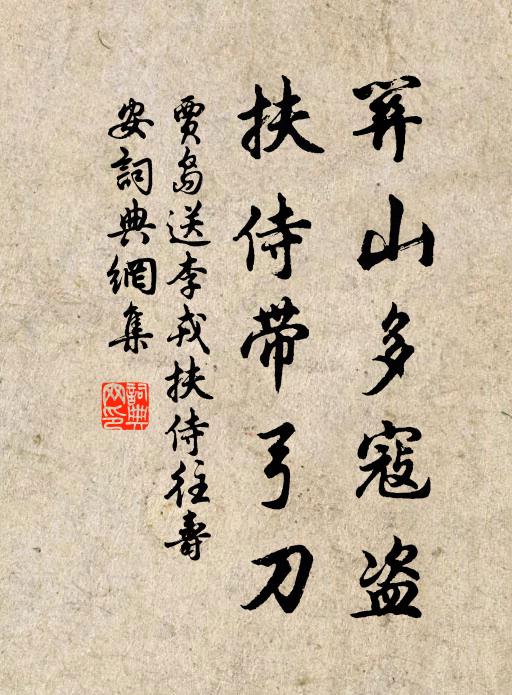 关山多寇盗
扶侍带弓刀
賈島送李戎扶侍往壽
安詞典網集
詞典
网印